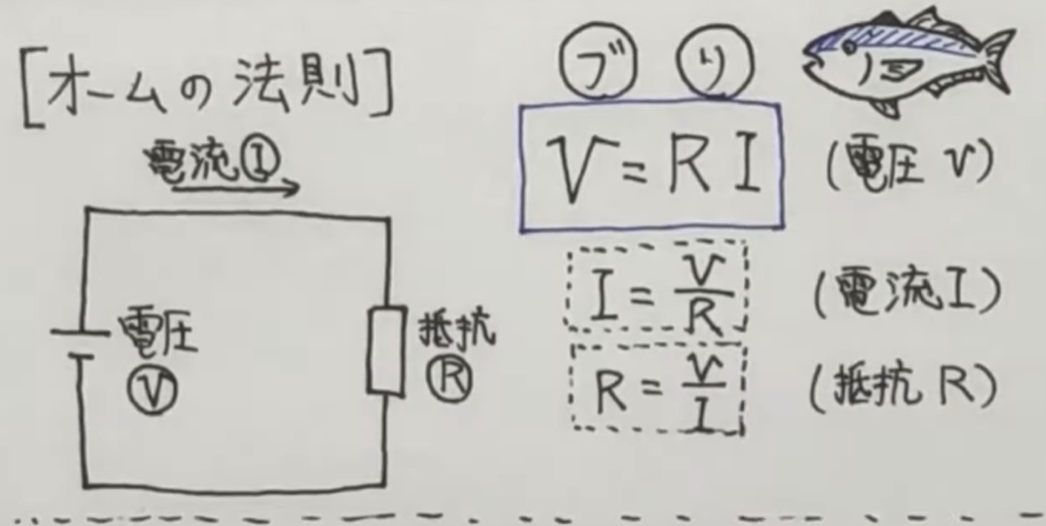 [オームの法則]
電流Ⓘ
電圧
Ⓥ
抵抗
Ⓡ
ブ り
V = R I (電圧 V)
I = V/R (電流 I)
R = V/I (抵抗 R)